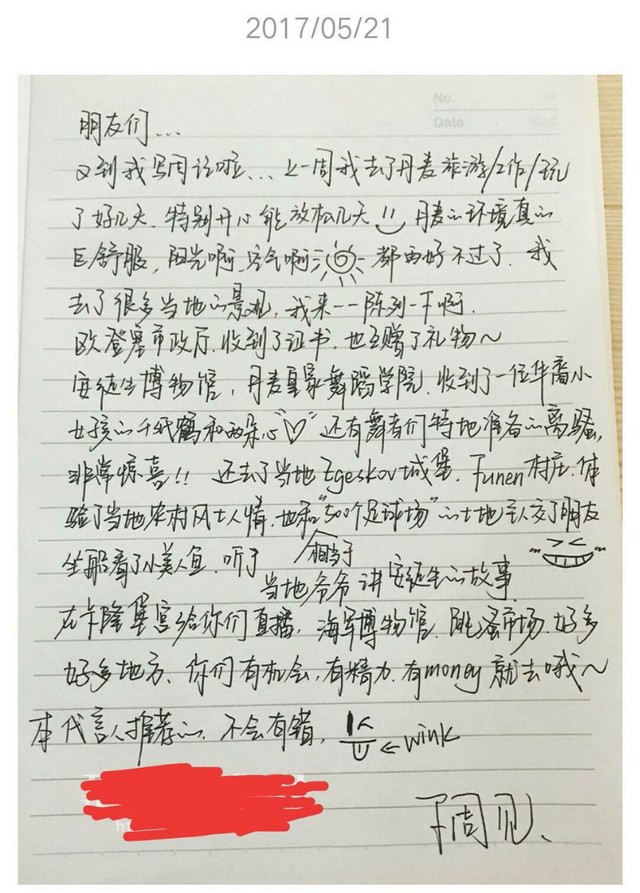 2017/05/21
No.
Date
朋友们...
又到我写周记啦... 上一周我去了丹麦旅游/工作/玩
了好几天. 特别开心能放松几天 丹麦的环境真的
巨舒服, 阳光啊, 空气啊 都再好不过了. 我
去了很多当地的景观, 我来一一陈列一下啊.
欧登塞市政厅. 收到了证书, 也互赠了礼物~
安徒生博物馆, 丹麦皇家舞蹈学院. 收到了一位华裔小
女孩的千纸鹤和两朵心"♡" 还有舞者们特地准备的离骚,
非常惊喜!! 还去了当地Egeskov城堡. Funen村庄. 体
验了当地农村风土人情. 也和"50个足球场"的土地主人交了朋友
相当于
坐船看了小美人鱼. 听了
当地爷爷讲安徒生的故事.
在卡隆堡宫给你们直播, 海军博物馆. 跳蚤市场. 好多
好多地方. 你们有机会, 有精力. 有money就去哦~
本代言人推荐的. 不会有错. ←wink
下周见、